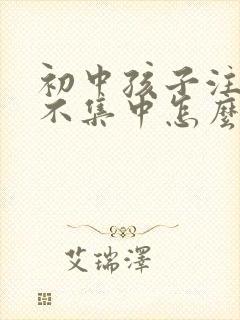 初中孩子注
不集中怎麼
艾瑞澤